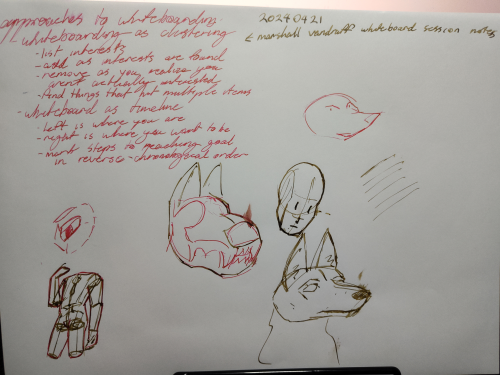 approaches to whiteboarding
- whiteboarding as clustering
- list interests
- add as interests are found
- remove as you realize you
aren't actually interested
- find things that hit multiple items
- whiteboard as timeline
- left is where you are
- right is where you want to be
- mark steps to reaching goal
in reverse-chronological order
2024 04 21
marshall vandruff whiteboard session notes